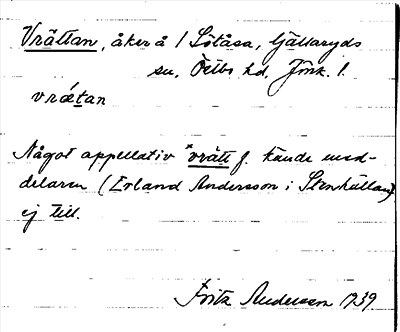 Vrättan, åker å / Slätåsa, Gällaryds
sn, Östbo hd, Jmk. l.
vrǽtan
Något appellativ *vrätt f. kände med-
delaren (Erland Andersson i Stenkullan)
ej till.
Fritz Andersson 1939